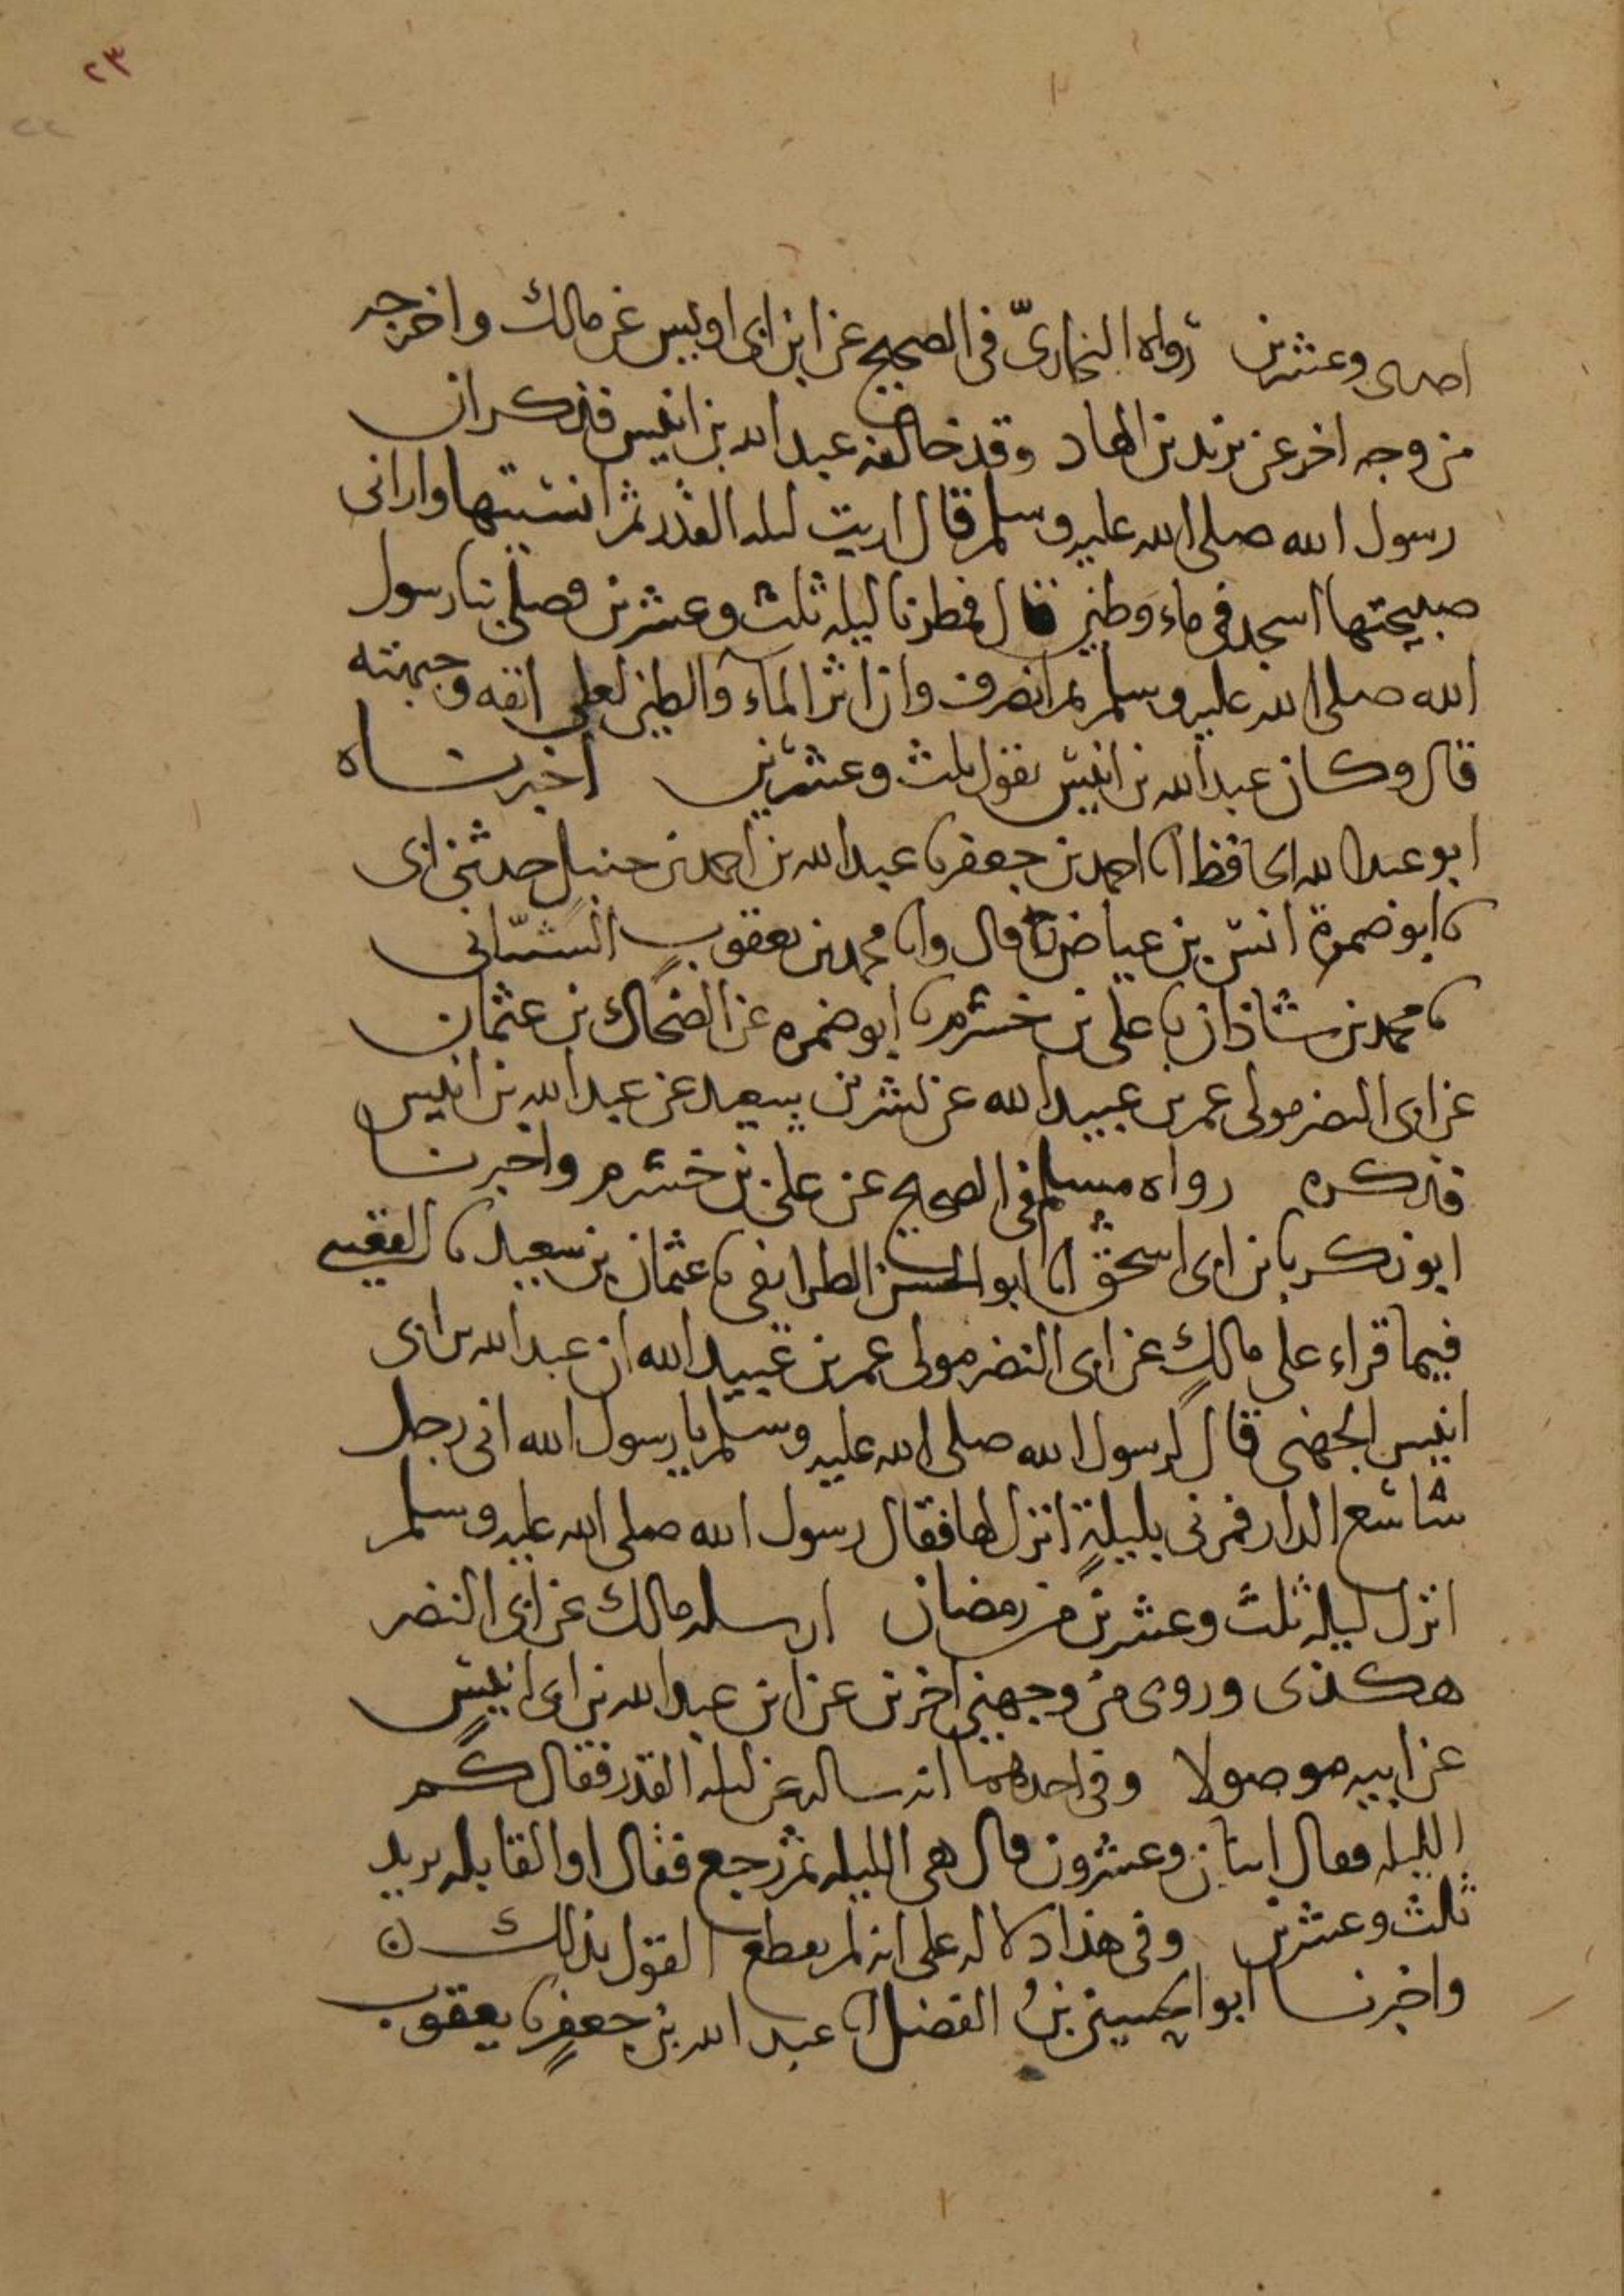 ٢٣
٢٢
احدى وعشرين رواه البخاريّ في الصحيح عن ابن ابى اويس عن مالك واخرجه
من وجه اخر عن يزيد بن الهاد وقد خالفه عبد الله بن انيس فذكر ان
رسول الله صلى الله عليه وسلم قال اريت ليله القدر ثم انسيتها واراني
صبيحتها اسجد في ماء وطين قال فمطرنا ليله ثلث وعشرين فصلى بنا رسول
الله صلى الله عليه وسلم ثم انصرف وان اثر الماء والطين لعلى انفه وجبهته
قال وكان عبد الله بن انيس يقول ثلث وعشرين اخبرناه
ابو عبد الله الحافظ انا احمد بن جعفر نا عبد الله بن احمد بن حنبل حدثني ابى
نا ابو ضمرة انس بن عياض قال وانا محمد بن يعقوب الشيباني
نا محمد بن شاذان نا على بن خشرم نا ابو ضمره عن الضحاك بن عثمان
عن ابى النضر مولى عمر بن عبيد الله عن بسر بن سعيد عن عبد الله بن انيس
فذكره رواه مسلم في الصحيح عن على بن خشرم واخبرنا
ابو زكريا بن ابى اسحق انا ابو الحسن الطرايفي نا عثمان بن سعيد نا القعنبي
فيما قراء على مالك عن ابى النضر مولى عمر بن عبيد الله ان عبد الله بن ابى
انيس الجهنى قال لرسول الله صلى الله عليه وسلم يا رسول الله انى رجل
شاسع الدار فمرنى بليلةٍ انزل لها فقال رسول الله صلى الله عليه وسلم
انزل ليله ثلث وعشرين من رمضان ارسله مالك عن ابى النضر
هكذى وروى من وجهين اخرين عن ابن عبد الله بن ابى انيس
عن ابيه موصولا وفي احدهما انه ساله عن ليله القدر فقال كم
الليله فقال اثنان وعشرون قال هى الليله ثم رجع فقال او القابله يريد
ثلث وعشرين وفي هذا دلاله على انه لم يقطع القول بذلك ن
واخبرنا ابو الحسين بن الفضل انا عبد الله بن جعفرٍ نا يعقوب